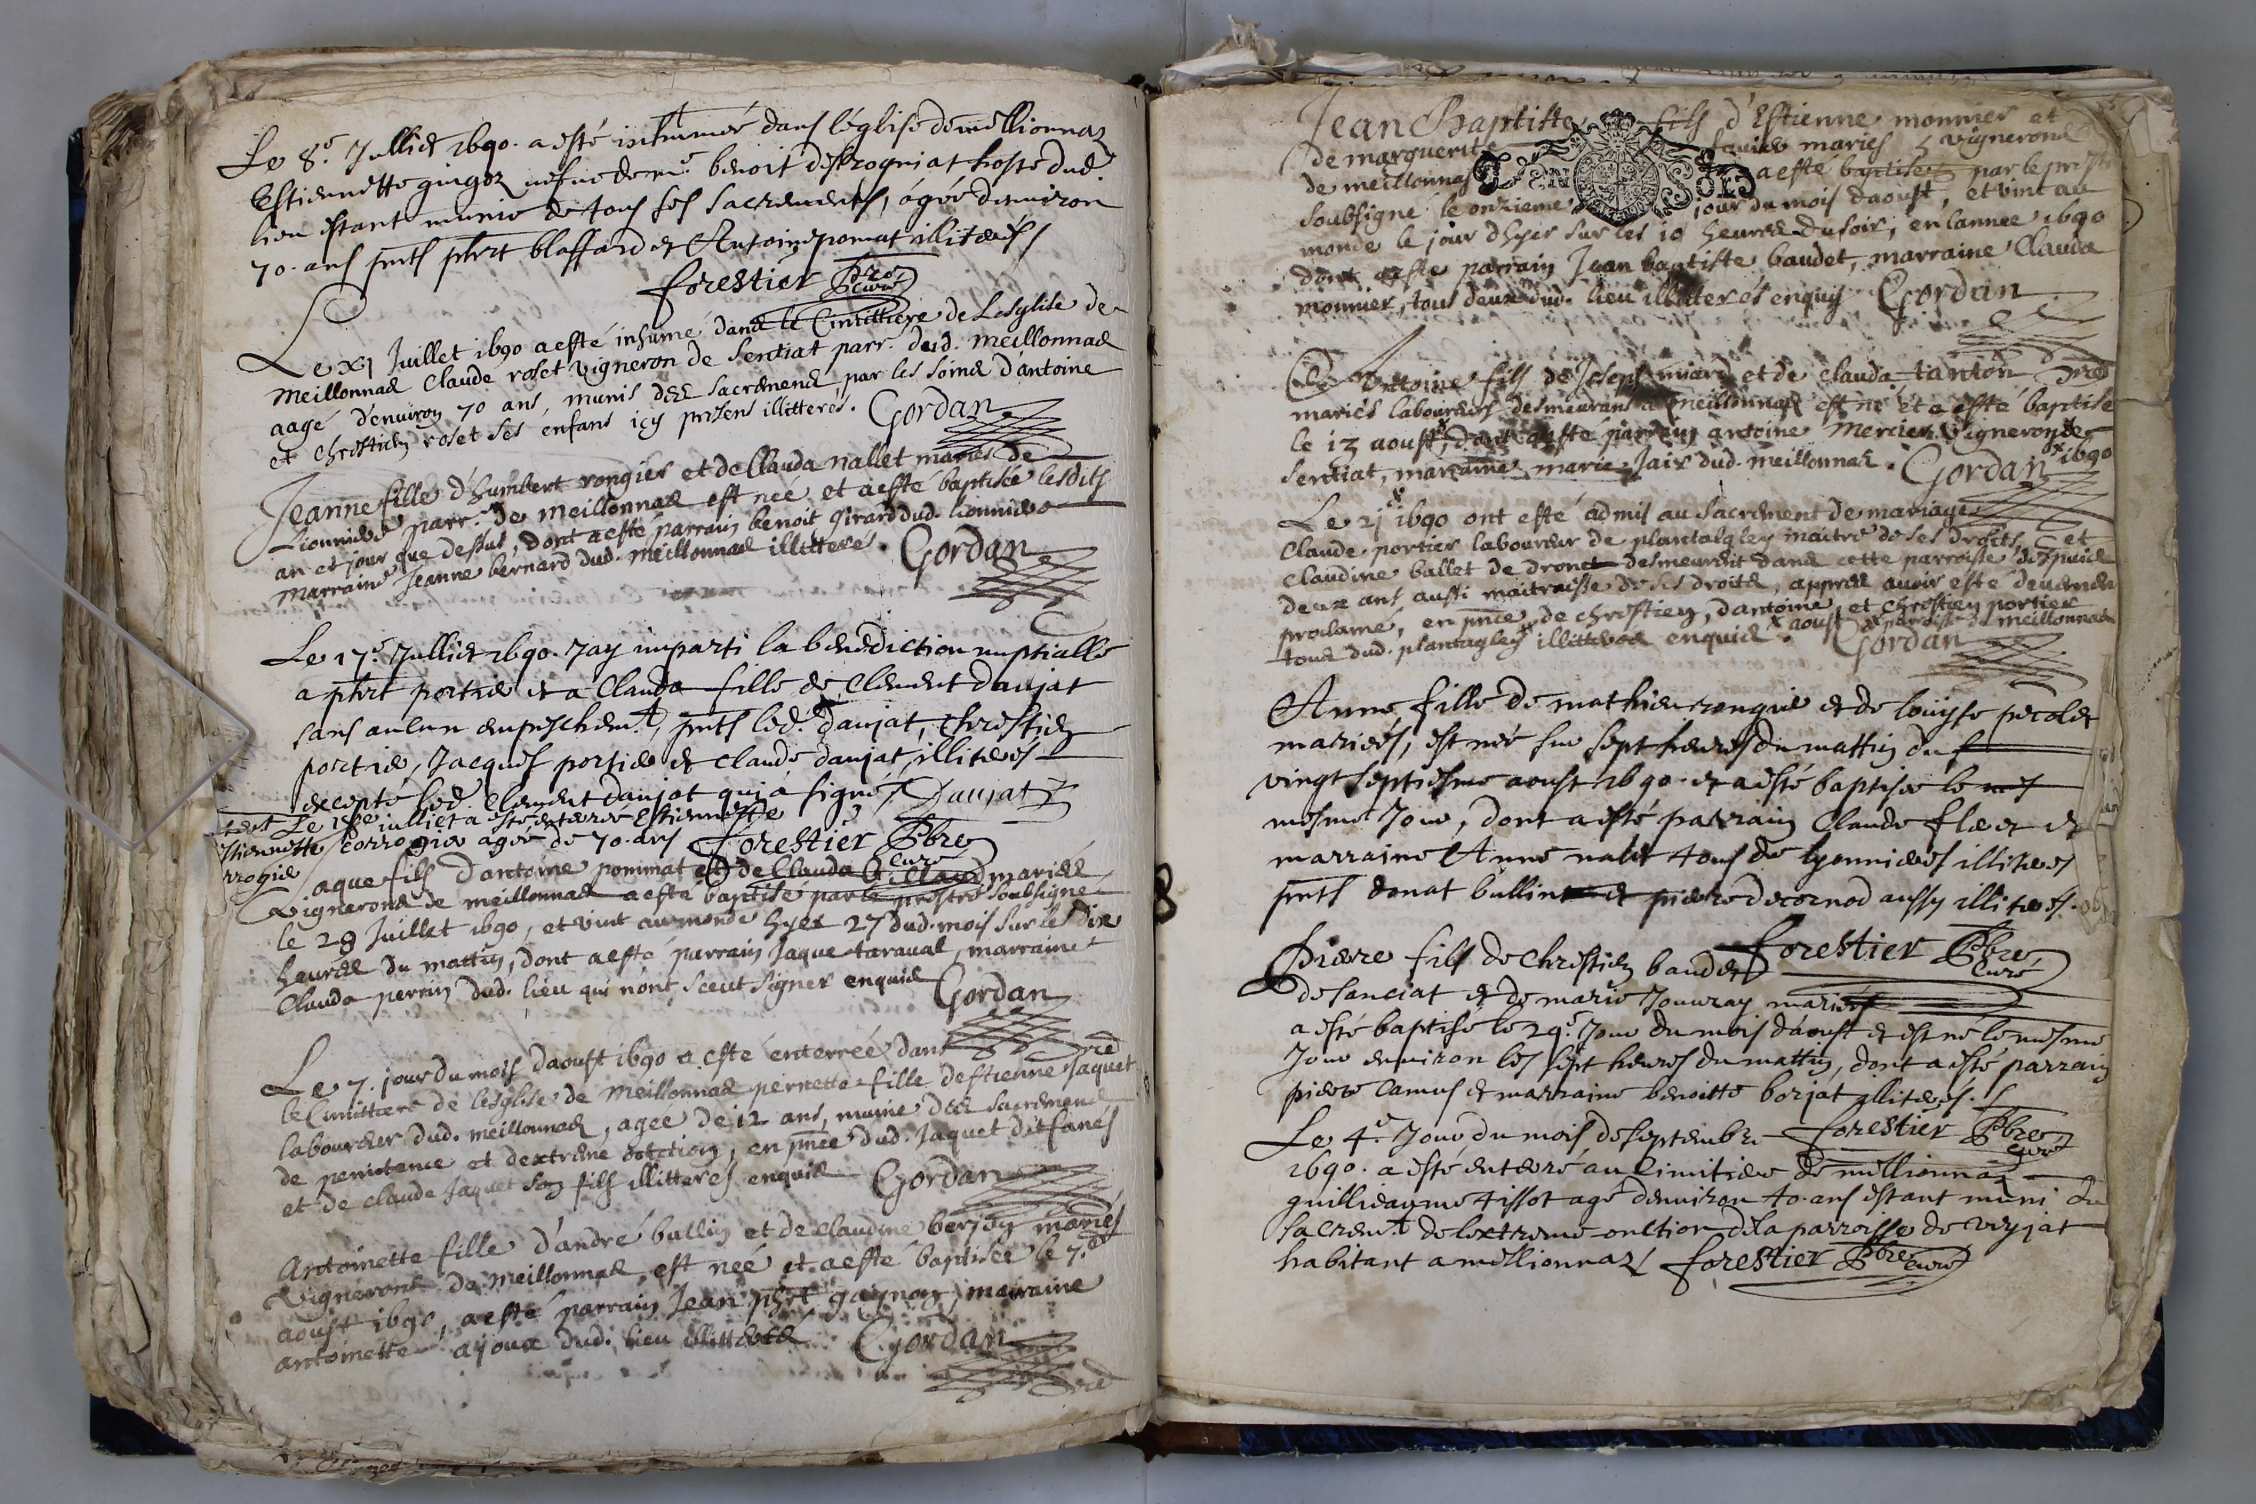 Le 8e Julliet 1690. a esté inhumée dans l'église de mellionnaz
Estiennette guigoz vefue de me. benoit desrogniat hoste dud.
lieu estant munie de tous ses sacrements, agée denuiron
70. ans pnts phrt blaffard et Antoine pomat illiterés
forestier Pbre
curé
Le XI Juillet 1690 a esté inhumé dans le Cimittiere de Lesglise de
Meillonnas Claude roset vigneron de sentiat parr. dud. meillonnas
aagé d'enuiron 70 ans, munis des sacremens par les soins d'antoine
et christien roset ses enfans icy presens illitteres. Gordan
Jeanne fille d'humbert rongier et de Clauda nallet mariés de
Lionnieres parr. de meillonnas est née et a esté baptisée lesdits
an et jour que dessus, dont a esté parrain benoit Girard dud. lionnieres
Marraine Jeanne bernard dud. meillonnas illitteré. Gordan
Le 17e Julliet 1690. Jay imparti la benediction nuptialle
a phrt portier et a Clauda fille de Clement daujat
sans aucun empeschemt, pnts led. daujat, chrestien
portier, Jacques portier et claude daujat, illiterés
excepté led. Clement daujat qui a signé Daujat
Le julliet a esté enterée Estiennette
corrogier agée de 70. ans forestier Pbre
curé
Jaque fils d'antoine pommat et de Clauda Gillaud mariés
Vignerons de meillonnas a esté baptisé par le prestre soubsigné
le 28 Juillet 1690, et vint au monde hyer 27 dud. mois sur les dix
heures du mattin, dont a esté parrain Jaque taraual, marraine
Clauda perrin dud. lieu qui n'ont sceut signer enquis Gordan
Le 7. jour du mois d'aoust 1690 a esté enterrée dans
le Cimittiere de lesglise de Meillonnas pernette fille destienne Jaquet
laboureur dud. meillonnas, agee de 12 ans, munie des sacremens
de penitence et dextreme onction, en pnce dud. Jaquet dit fanés
et de claude Jaquet son fils illitteres enquis Gordan
Antoinette fille d'andré bullin et de claudine berjon mariés
Vignerons de Meillonnas, est née et a esté baptisée le 7.
aoust 1690, a esté parrain Jean phrt gaynon, marraine
antoinette ajoux dud. lieu illitterés Gordan
Jean Baptiste fils d'Estienne monnier et
de marguerite mariés vignerons
de meillonnas a esté baptisé par le prestre
soubsigné le onzieme jour du mois daoust, et vint au
monde le jour d'hyer sur les 10 heures du soir, en lannee 1690
dont a esté parrain Jean baptiste baudet, marraine Clauda
monnier, tous deux dud. lieu illitterés enquis Gordan
GEN SOLS
Antoine fils de Joseph miard et de clauda tanton
mariés laboureurs desmeurans a meillonnas est né et a esté baptisé
le 12 aoust, dont a esté parrain antoine Mercier Vigneron de
sentiat, marraine marie Jaix dud. meillonnas. Gordan 1690
Le 21 1690 ont esté admis au sacrement de mariage
Claude portier laboureur de plantagley maitre de ses droits et
Claudine ballet de dronet desmeurant dans cette parroisse despuis
deux ans aussi maitraisse de ses droits, appres auoir esté deuement
proclamé, en pnce de chrestien, d'antoine, et chrestien portier
tous dud. plantagley illitterés enquis. aoust paroisse de meillonnas
Gordan
Anne fille de mathieu rongier et de louysse picolet
mariés, est née sur sept heures du mattin du
vingt septiesme aoust 1690. et a esté baptisée le
mesme Jour, dont a esté parrain Claude flaet et
marraine Anne nalet tous de lyonnieres illiteres
pnts donat bullin et pierre decornod aussy illiteres.
forestier Pbre
curé
Pierre fils de Chrestien baudet
de sanciat et de marie Jouuray mariés
a esté baptisé le 29e. Jour du mois d'aoust et est né le mesme
Jour enuiron les sept heures du mattin, dont a esté parrain
pierre Camus et marraine benoitte borjat illiterés.
forestier Pbre
curé
Le 4e. Jour du mois de septembre
1690. a esté enterré au Cimitiere de mellionnaz
guillieaume tissot agé denuiron 40. ans estant muni du
sacremt de lextreme onction de la parroisse de veyjat
habitant a mellionnaz forestier Pbre curé